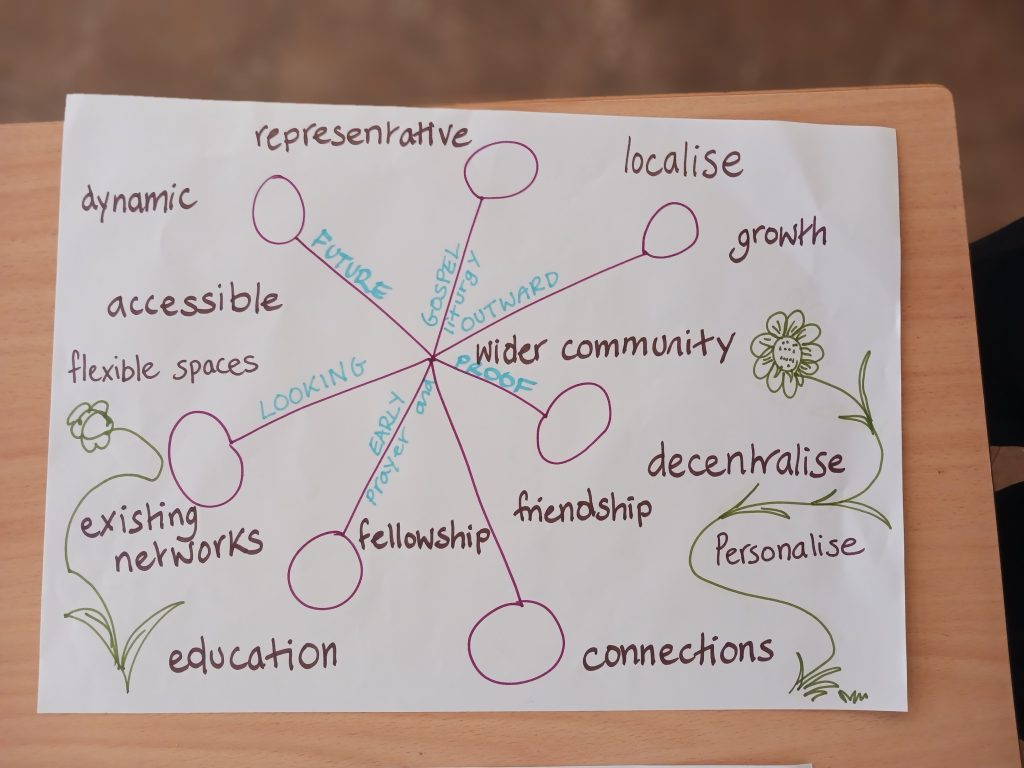 representative
localise
dynamic
growth
FUTURE
GOSPEL
liturgy
OUTWARD
accessible
wider community
flexible spaces
LOOKING
PROOF
EARLY
prayer and
decentralise
existing
networks
fellowship
friendship
Personalise
education
connections